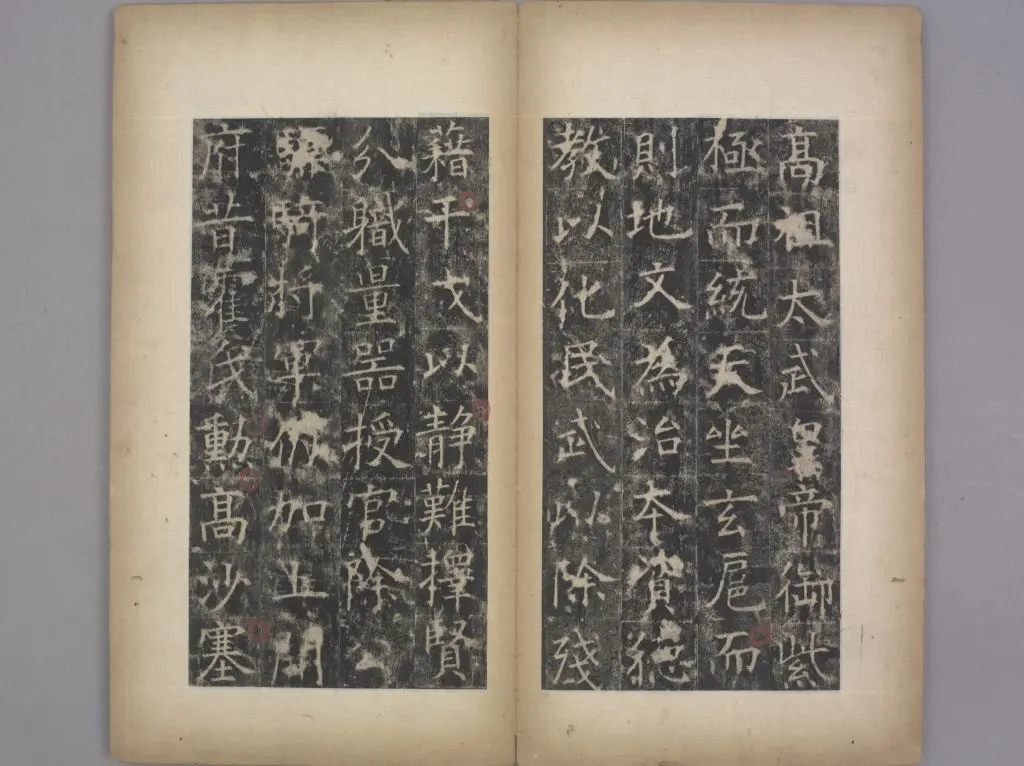 髙祖太武皇帝御紫
極而統天坐玄扈而
則地文為治本資德
教以化民武以除殘
藉干戈以靜難擇賢
分職量器授官除
驃騎將軍仍加上開
府昔霍氏勳髙沙塞